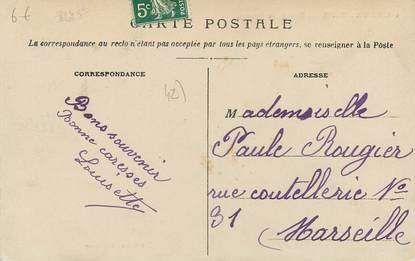 6 €
5c
CARTE POSTALE
La correspondance au recto n'étant pas acceptée par tous les pays étrangers, se renseigner à la Poste
CORRESPONDANCE
Bons souvenir
Bonne caresses
Lousette
ADRESSE
Mademoiselle
Paule Rougier
rue coutellerie No
31
Marseille